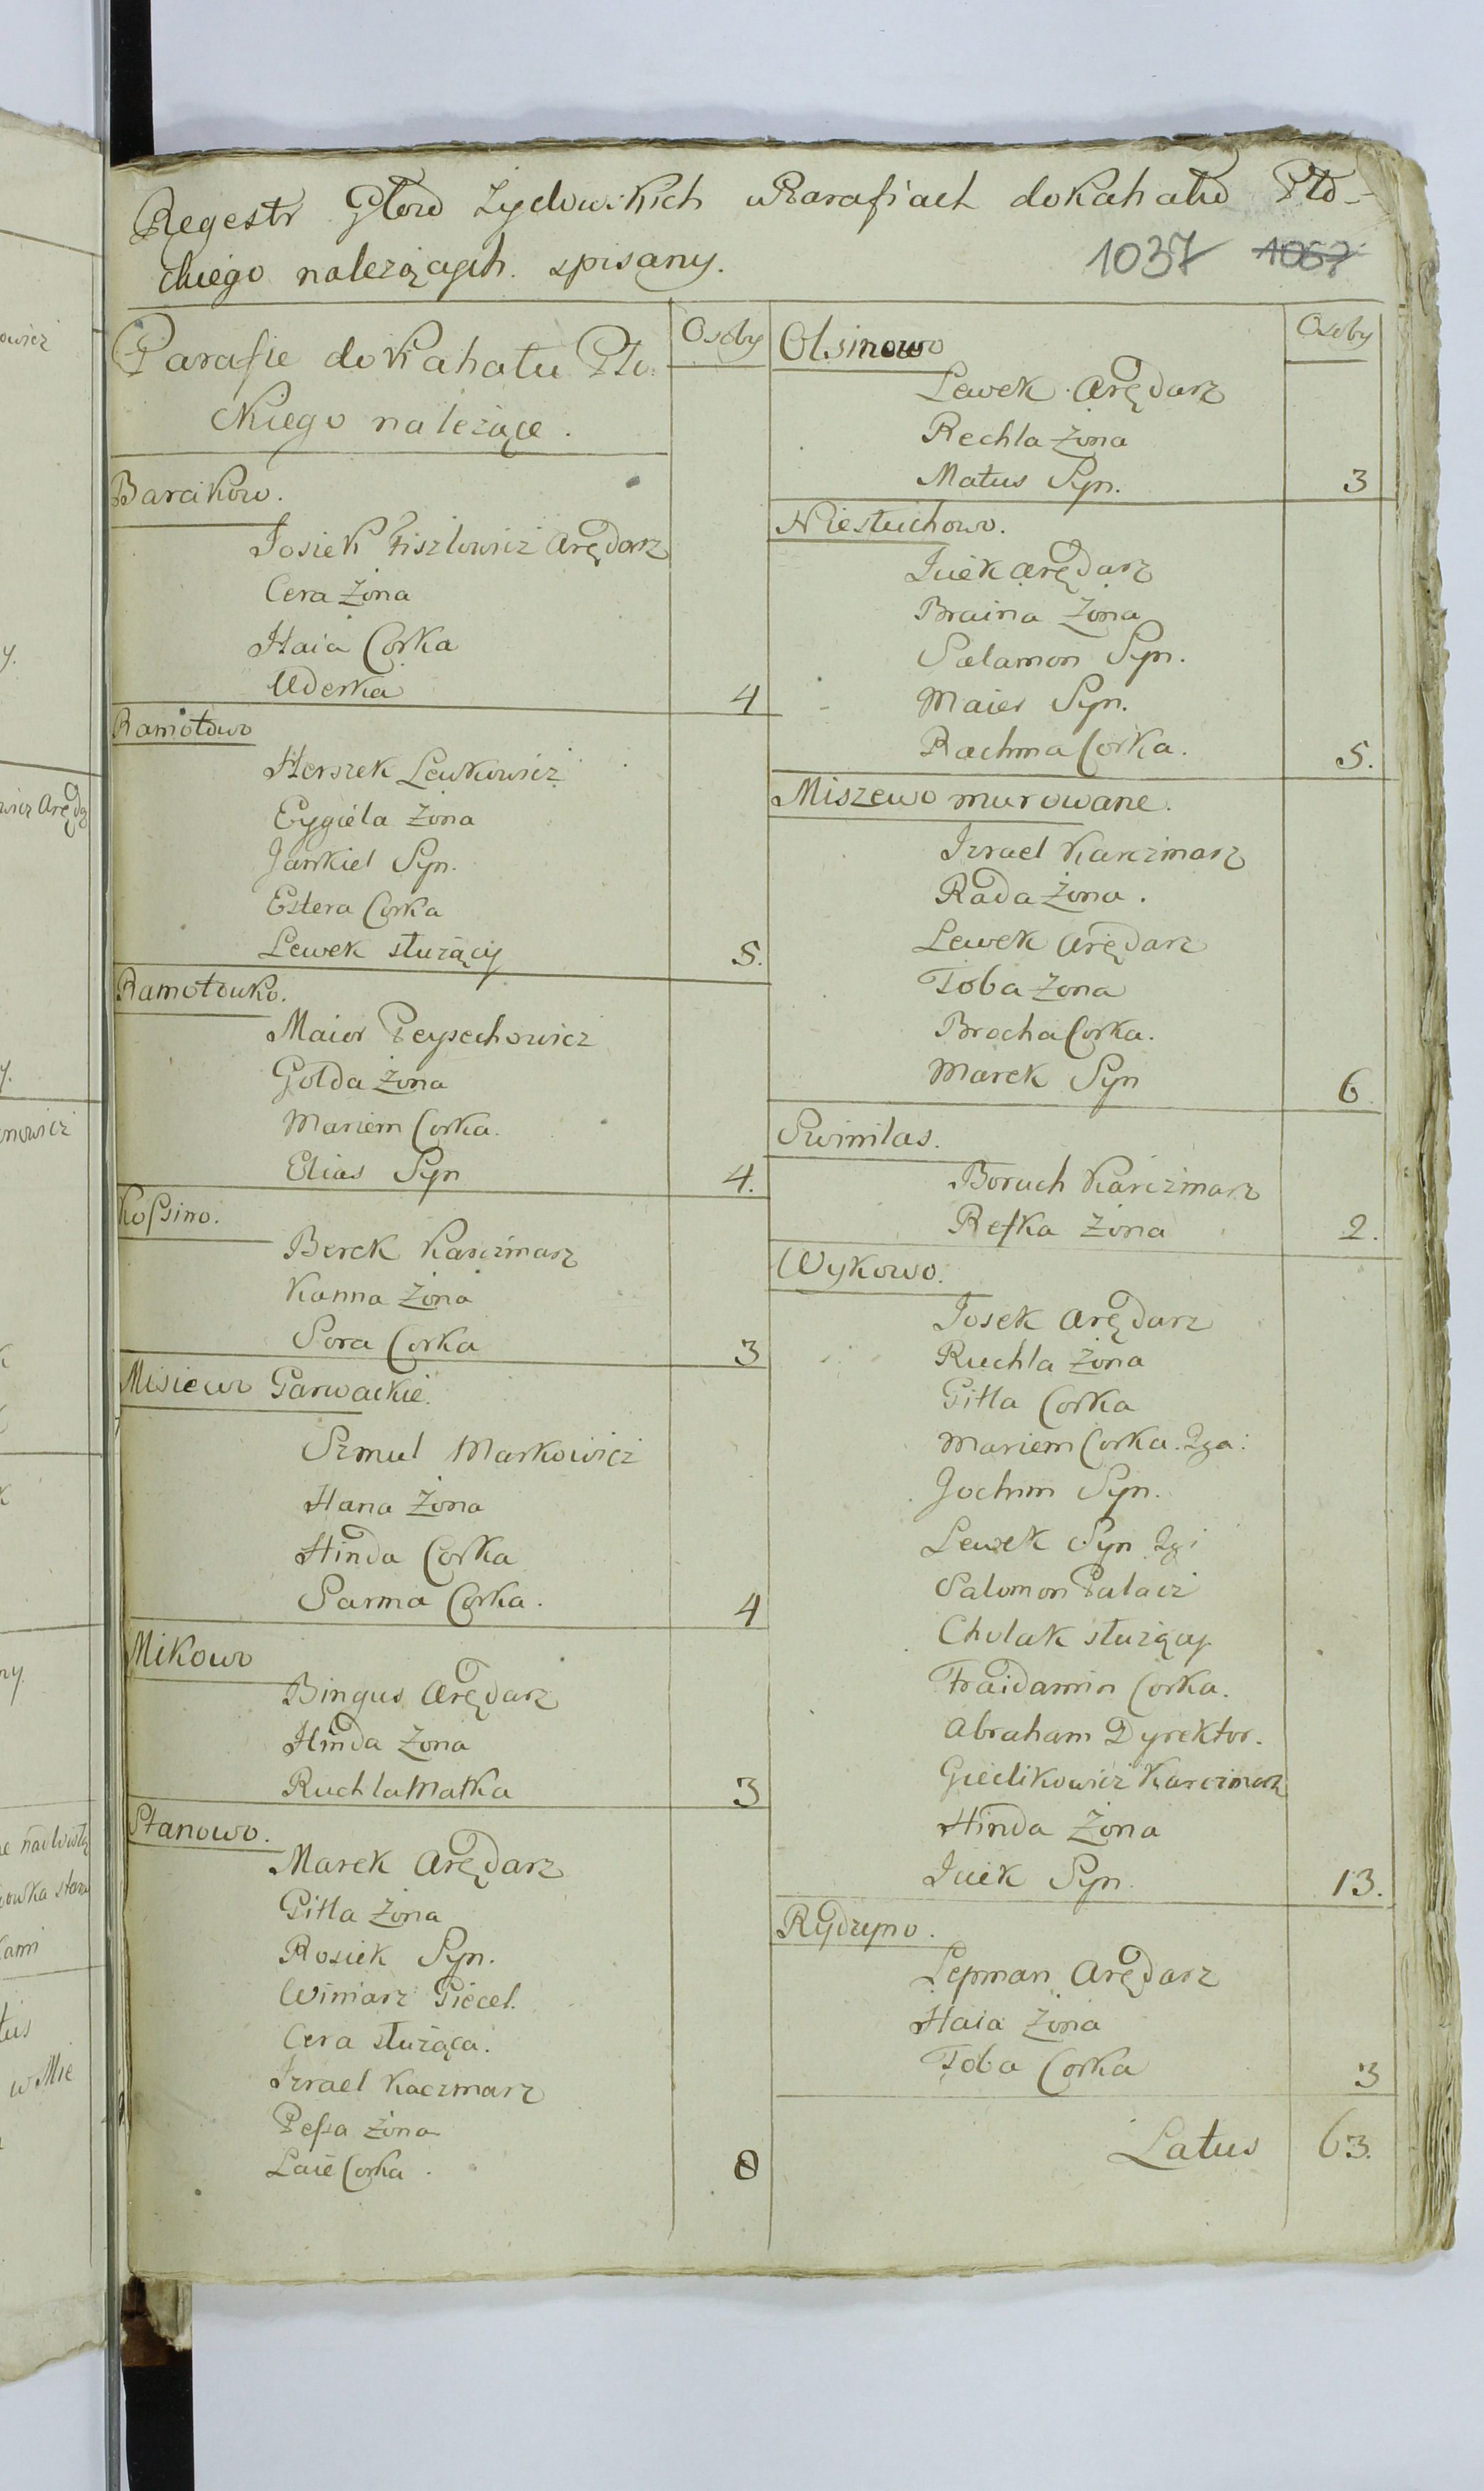 Regestr Głow Zydowskich w Parafiach do Kahału Pło-
ckiego należących spisany.
1037 1067
Parafie do Kahału Pło:
ckiego należące.
Osoby
Barcikow.
Josiek Fiszlowicz Arędarz
Cera Żona
Haia Corka
Uderka
4
Ramołowo
Herszek Lewkowicz
Eygiela Żona
Jankiel Syn.
Estera Corka
Lewek służący
5.
Ramotowko.
Maior Peysechowicz
Golda Żona
Mariem Corka.
Elias Syn
4.
Koſsino.
Berek Karczmarz
Hanna Żona
Sora Corka
3
Misiewo Garwackie.
Szmul Markowicz
Hana Żona
Hinda Corka
Sarma Corka.
4
Mikowo
Bingus Arędarz
Hinda Żona
Ruchla Matka
3
Stanowo.
Marek Arędarz
Gitla Żona
Rosiek Syn.
Winiarz Giecel.
Cera służąca.
Izrael Kaczmarz
Peſsa Żona
Laie Corka.
8
Olsinowo
Osoby
Lewek Arędarz
Rechla Żona
Matus Syn.
3
Niesłuchowo.
Icek Arędarz
Braina Żona
Salamon Syn.
Maier Syn.
Rachma Corka.
5.
Miszewo murowane.
Izrael Karczmarz
Rada Żona.
Lewek Arędarz
Toba Żona
Brocha Corka.
Marek Syn
6.
Swinilas.
Boruch Karczmarz
Refka Żona
2.
Wykowo.
Josek Arędarz
Ruchla Żona
Gitla Corka
Mariem Corka. 2ga:
Jochim Syn.
Lewek Syn 2gi
Salomon Palacz
Chulak służący
Fraidamin Corka.
Abraham Dyrektor.
Gieclikowicz Karczmarz
Hinda Żona
Icek Syn.
13.
Rydzyno.
Lepman Arędarz
Haia Żona
Toba Corka
3
Latus 63.